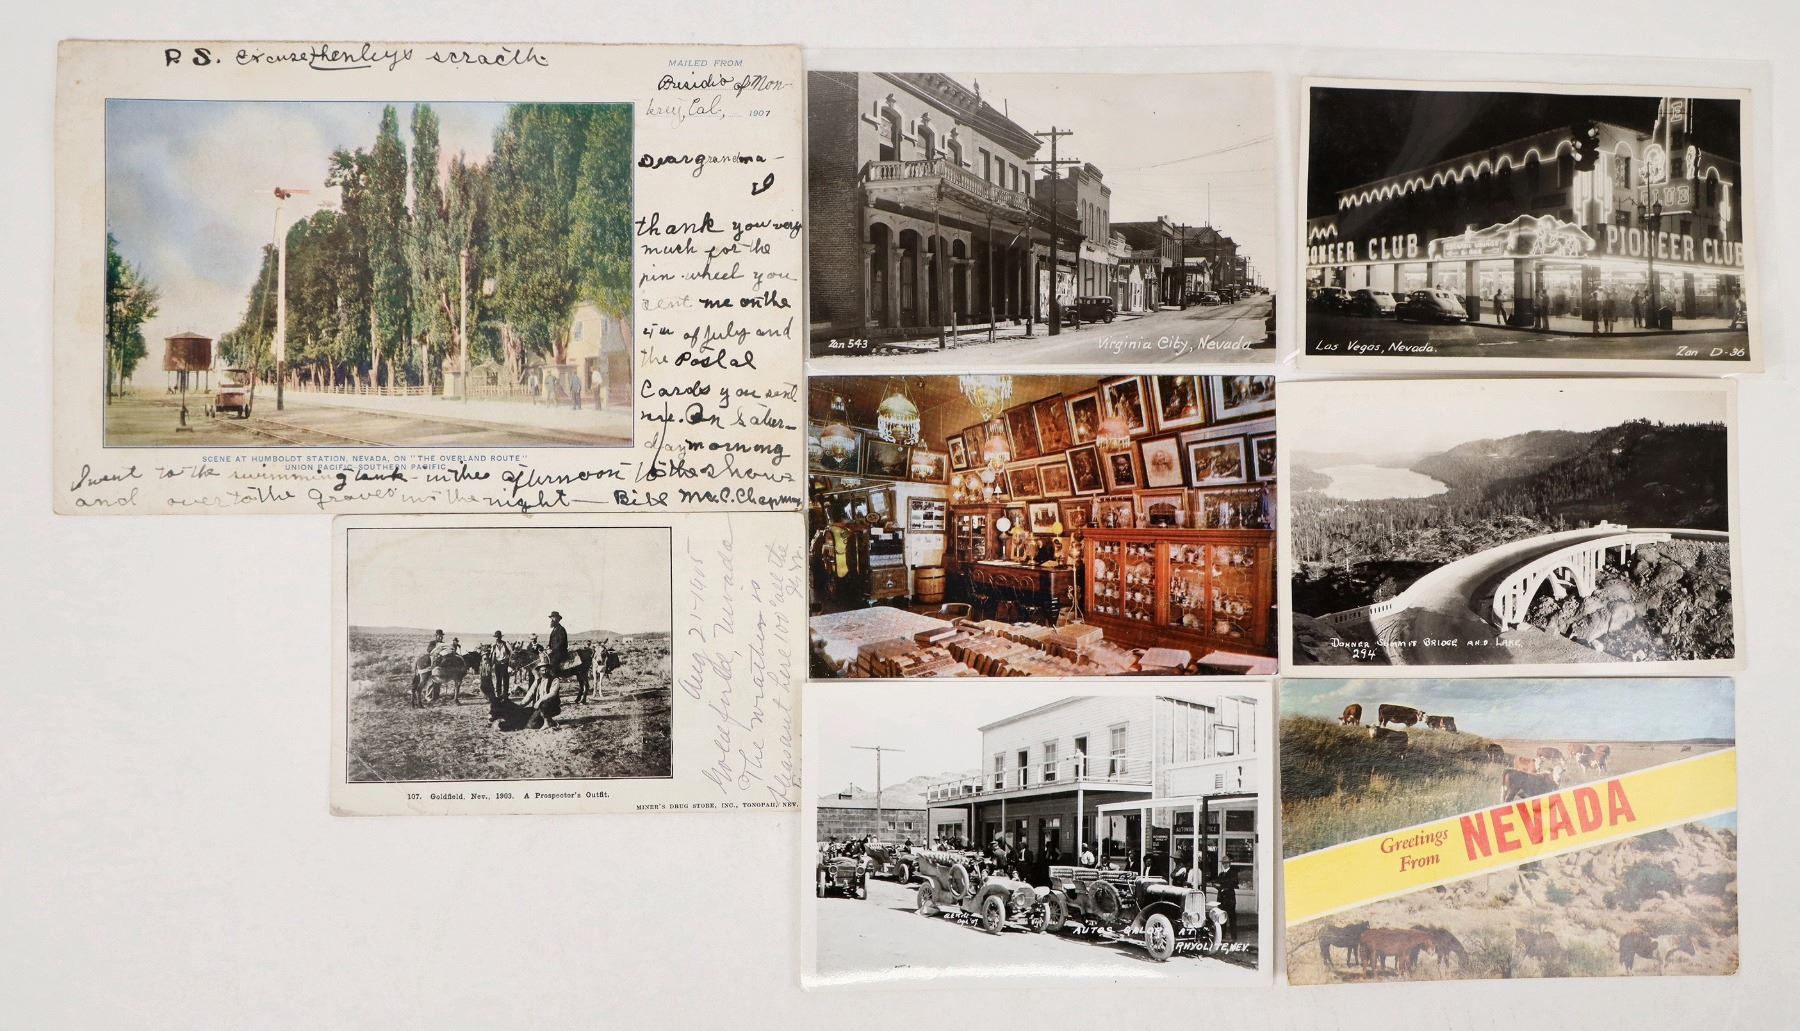 P.S. excuse henlys scracth.
MAILED FROM
Presidio of Mon-
terey, Cal., 1907
Dear grandma -
I
thank you very
much for the
pin-wheel you
cent me on the
4th of July and
the Postal
Cards you sent
me. On Satur-
day morning
SCENE AT HUMBOLDT STATION, NEVADA, ON "THE OVERLAND ROUTE"
UNION PACIFIC-SOUTHERN PACIFIC
I went to the swimming tank - in the afternoon to the show
and over to the in the night - Bill McC. Chapman
107. Goldfield, Nev., 1903. A Prospector's Outfit.
MINER'S DRUG STORE, INC., TONOPAH, NEV.
Aug 21-1905
Goldfield, Nevada
The weather is
pleasant here 100° all the
time
RICHFIELD
Zan 543
Virginia City, Nevada
AUTOS GALORE AT
RHYOLITE, NEV.
CLUB
PIONEER CLUB
COCKTAIL LOUNGE
PIONEER CLUB
Las Vegas, Nevada.
Zan D-36
DONNER SUMMIT BRIDGE AND LAKE
294
Greetings
From
NEVADA